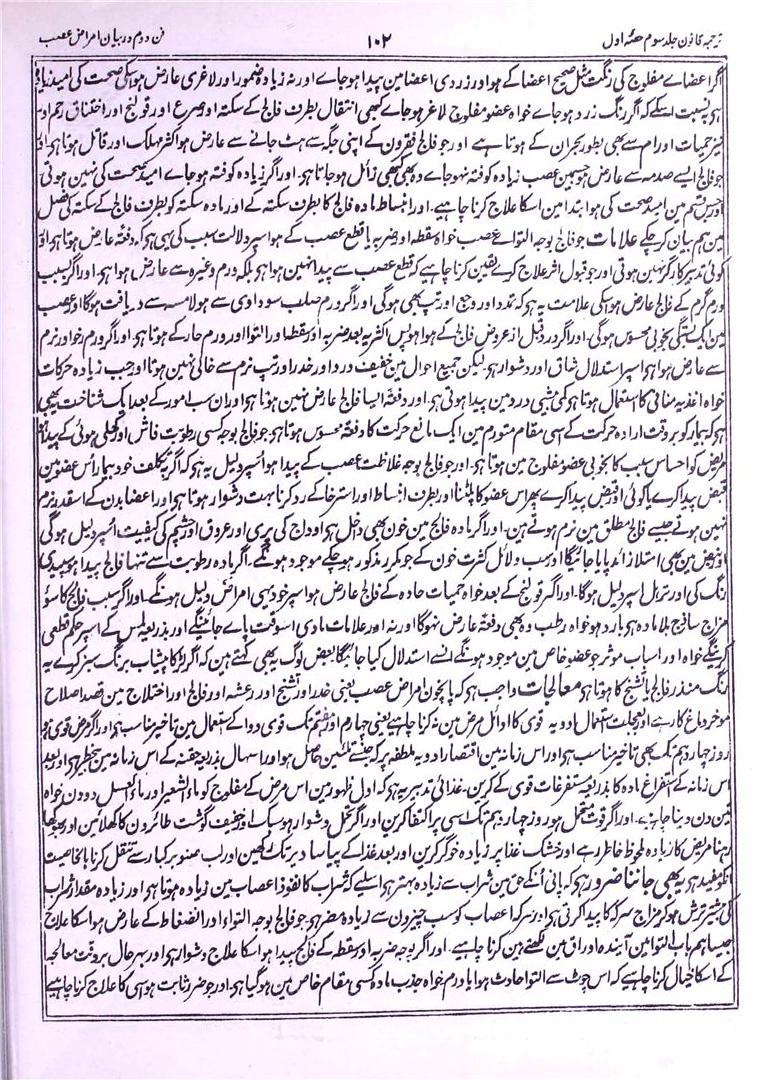 ترجمہ قانون جلد سوم حصہ اول ۱۰۲ فن دوم در بیان امراض عصب
اگر اعضاے مفلوج کی رنگت مثل صحیح اعضا کے ہو اور زردی اعضا مین پیدا ہوجاے اور نہ زیادہ ضمور اور لاغری عارض ہو اسکی صحت کی امید زیادہ
ہی بہ نسبت اسکے کہ اگر رنگ زرد ہوجاے خواہ عضو مفلوج لاغر ہوجاے کبھی انتقال بطرف فالج کے سکتہ اور صرع اور قولنج اور اختناق رحم اور
نیز حمیات اورام سے بھی بطور بحران کے ہوتا ہے اور جو فالج فقرون کے اپنی جگہ سے ہٹ جانے سے عارض ہو اکثر مہلک اور قاتل ہوتا ہی اور
جو فالج ایسے صدمہ سے عارض ہو جسمین عصب زیادہ کوفتہ نہوجاے وہ بھی کبھی زائل ہوجاتا ہی۔ اور اگر زیادہ کوفتہ ہوجاے امید صحت کی نہین ہوتی
اور جس قسم مین امید صحت کی ہو ابتدا مین اسکا علاج کرنا چاہیے۔ اور انبساط مادہ فالج کا بطرف سکتہ کے اور مادہ سکتہ کو بطرف فالج کے سکتہ کی فصل
مین ہم بیان کرچکے علامات جو فالج بوجہ التواے عصب خواہ سقطہ اور ضربہ یا قطع عصب کے ہو اسپر دلالت سبب کی یہی ہو کہ دفعتہ عارض ہوتا ہی اور
کوئی تدبیر کارگر نہین ہوتی اور جو قبول اثر علاج کرے یقین کرنا چاہیے کہ قطع عصب سے پیدا نہین ہوا ہی بلکہ ورم وغیرہ سے عارض ہوا ہی۔ اور اگر بسبب
ورم گرم کے فالج عارض ہو اسکی علامت یہ ہو کہ تمدد اور وجع اور تپ بھی ہوگی اور اگر ورم صلب سوداوی سے ہو لامسہ سے دریافت ہوگا اور عصب
مین ایک بستگی بخوبی محسوس ہوگی۔ اور اگر درد قبل از عروض فالج کے ہوا ہو پس اکثر یہ بعد ضربہ اور سقطہ اور التوا اور ورم حار کے ہوتا ہی۔ اور اگر ورم رخو اور نرم
سے عارض ہوا ہی اسپر استدلال شاق اور دشوار ہی لیکن جمیع احوال مین خفیف درد اور خدر اور تپ نرم سے خالی نہین ہوتا اور جب زیادہ حرکات
خواہ اغذیہ منافی کا استعمال ہوتا ہی کمی بیشی درد مین پیدا ہوتی ہی۔ اور دفعتہ ایسا فالج عارض نہین ہوتا ہی اور ان سب امور کے بعد ایک شناخت یہ بھی
ہی کہ بیمار کو بروقت ارادہ حرکت کے اسی مقام متورم مین ایک مانع حرکت کا دفعتہ محسوس ہوتا ہی۔ جو فالج بوجہ کسی رطوبت فاش اور پھیلی ہوئی کے پیدا ہو
مریض کو احساس سبب کا بخوبی عضو مفلوج مین ہوتا ہی۔ اور جو فالج بوجہ غلاظت عصب کے پیدا ہو اسپر دلیل یہ ہو کہ اگر بہ تکلف خود بیمار اس عضو مین
قبض پیدا کرے یا کوئی اور قبض پیدا کرے پھر اس عضو کا پلٹنا اور بطرف انبساط اور استرخا کے رد کرنا بہت دشوار ہوتا ہی اور اعضا بدن کے اسقدر نرم
نہین ہوتے جیسے فالج مطلق مین نرم ہوتے ہین۔ اور اگر مادہ فالج مین خون بھی دخل ہی اوداج کی پری اور عروق اور چشم کی کیفیت اسپر دلیل ہوگی
اور نبض مین بھی امتلا زائد پایا جائیگا اور سب دلائل کثرت خون کے جو مکرر مذکور ہوچکے موجود ہونگے۔ اگر مادہ رطوبت سے تنہا فالج پیدا ہو سپیدی
رنگ کی اور ترہل اسپر دلیل ہوگا۔ اور اگر قولنج کے بعد خواہ حمیات حادہ کے فالج عارض ہو اسپر خود یہی امراض دلیل ہونگے۔ اور اگر سبب فالج کا سوء
مزاج ساذج بلا مادہ ہی بارد ہو خواہ رطب وہ بھی دفعتہ عارض نہوگا اور نہ اور علامات مادی اسوقت پاے جائینگے اور بذریعہ لمس کے اسپر حکم قطعی
کرینگے خواہ اور اسباب موثر جو عضو خاص مین موجود ہونگے اُنسے استدلال کیا جائیگا بعض لوگ یہ بھی کہتے ہین کہ اگر لڑکا پیشاب برنگ سبز کرے یہ
رنگ منذر فالج یا تشنج کا ہوتا ہی معالجات واجب ہی کہ پانچون امراض عصب یعنی خدر اور تشنج اور رعشہ اور فالج اور اختلاج مین قصد اصلاح
موخر دماغ کا رہے اور بعجلت استعمال ادویہ قوی کا اوائل مرض مین نہ کرنا چاہیے یعنی چہارم اور ہفتم تک قوی دوا کے استعمال مین تاخیر مناسب ہی اور اگر مرض قوی ہو
روز چہاردہم تک بھی تاخیر مناسب ہی اور اس زمانہ مین اقتصار ادویہ ملطفہ پر کہ جنسے تلئین حاصل ہو اور اسہال بذریعہ حقنہ کے اس زمانہ مین بے خطر ہی اور بعد
اس زمانہ کے استفراغ مادہ کا بذریعہ مستفرغات قوی کے کرین۔ غذائی تدبیر یہ ہی کہ اول ظہور مین اس مرض کے مفلوج کو ماء الشعیر اور ماء العسل دو دن خواہ
تین دن دینا چاہیے۔ اور اگر قوت متحمل ہو روز چہاردہم تک اسی پر اکتفا کرین اور اگر تحمل دشوار ہو سبک اور خفیف گوشت طائرون کا کھلائین اور بھوکھا
رہنا مریض کا زیادہ ملحوظ خاطر رہے اور خشک غذا پر زیادہ خوگر کرین اور بعد غذا کے پیاسا دیر تک رکھین اور لب صنوبر کبار سے تنقل کرنا بالخاصیت
انکو مفید ہی یہ بھی جاننا ضرور ہی کہ پانی اُنکے حق مین شراب سے زیادہ بہتر ہو اسلیے کہ شراب کا نفوذ اعصاب مین زیادہ ہوتا ہی اور زیادہ مقدار شراب
کی بیشتر ترش ہوکر مزاج سرکہ کا پیدا کرتی ہی اور سرکہ اعصاب کو سب چیزون سے زیادہ مضر ہی جو فالج بوجہ التواء اور انضغاط کے عارض ہو اسکا علاج
جیسا ہم باب التوا مین آیندہ اوراق مین لکھتے ہین کرنا چاہیے۔ اور اگر بوجہ ضربہ اور سقطہ کے فالج پیدا ہو اسکا علاج دشوار ہی اور بہر حال بروقت معالجہ
کے اسکا خیال کرنا چاہیے کہ اس چوٹ سے التوا حادث ہوا یا ورم خواہ جذب مادہ کسی مقام خاص مین ہوگیا ہی اور جو ضرر ثابت ہو اُسی کا علاج کرنا چاہیے